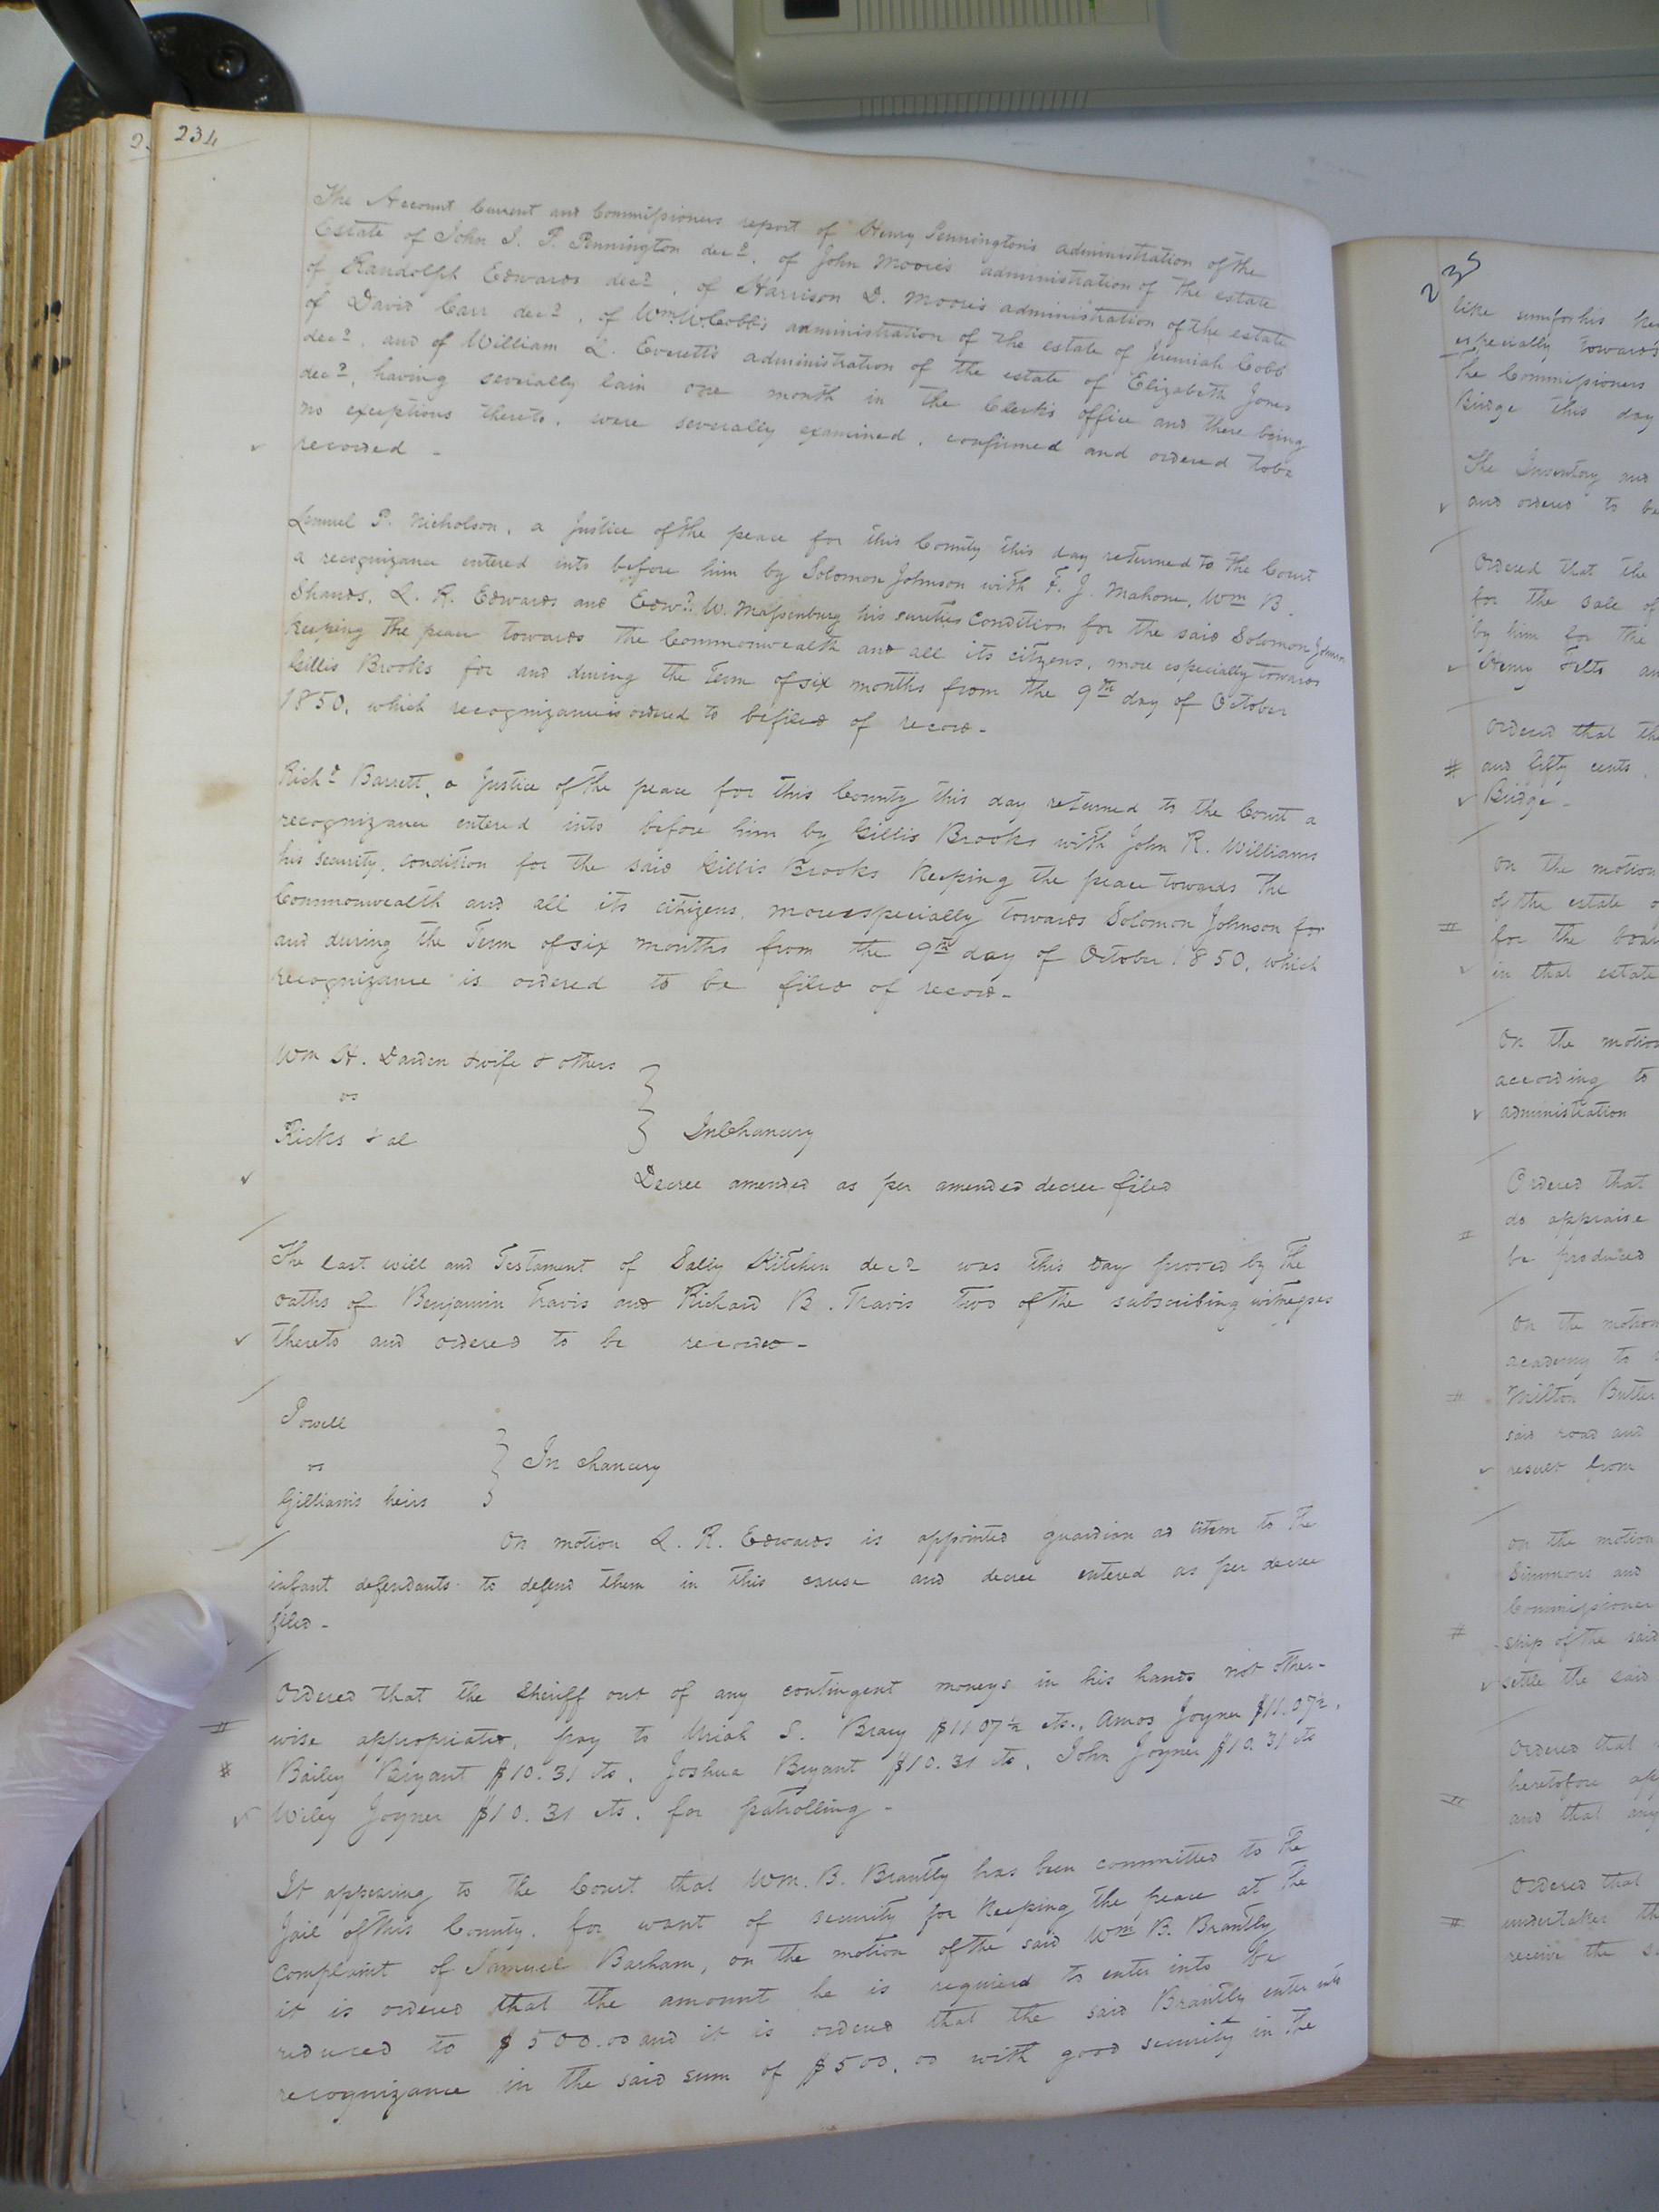 234
The Account Current and Commissioners report of Henry Pennington's administration of the
Estate of John J. T. Pennington decd, of John Moore's administration of the estate
of Randolph Edwards decd, of Harrison D. Moore's administration of the estate
of David Carr decd, of Wm. W. Cobb's administration of the estate of Jeremiah Cobb
decd, and of William L. Everett's administration of the estate of Elizabeth Jones
decd, having severally lain one month in the Clerk's office and there being
no exceptions thereto, were severally examined, confirmed and ordered to be
recorded -
Lemuel P. Nicholson, a Justice of the peace for this County this day returned to the Court
a recognizance entered into before him by Solomon Johnson with F. J. Mahone, Wm B.
Shands, L. R. Edwards and Edwd. W. Massenburg his sureties Condition for the said Solomon Johnson
keeping the peace towards the Commonwealth and all its citizens, more especially towards
Gillis Brooks for and during the Term of six months from the 9th day of October
1850, which recognizance is ordered to be filed of record -
Richd Barrett, a Justice of the peace for this County this day returned to the Court a
recognizance entered into before him by Gillis Brooks with John R. Williams
his security, condition for the said Gillis Brooks Keeping the peace towards the
Commonwealth and all its citizens, more especially towards Solomon Johnson for
and during the Term of six months from the 9th day of October 1850, which
recognizance is ordered to be filed of record -
Wm H. Darden & wife & others
vs
Ricks & al
In Chancery
Decree amended as per amended decree filed
The last will and Testament of Sally Kitchen decd was this day proved by the
oaths of Benjamin Travis and Richard B. Travis two of the subscribing witnesses
thereto and ordered to be recorded -
Powell
vs
Gilliam's heirs
In chancery
On motion L. R. Edwards is appointed guardian ad litem to the
infant defendants to defend them in this cause and decree entered as per decree
filed -
Ordered that the Sheriff out of any contingent moneys in his hands not other-
wise appropriated, pay to Uriah S. Bracy $11.07½ cts., Amos Joyner $11.07½,
Bailey Bryant $10.31 cts, Joshua Bryant $10.31 cts, John Joyner $10.31 cts
Wiley Joyner $10.31 cts. for patrolling -
It appearing to the Court that Wm. B. Brantly has been committed to the
Jail of this County, for want of security for Keeping the peace at the
complaint of Samuel Barham, on the motion of the said Wm B. Brantly
it is ordered that the amount he is required to enter into be
reduced to $500.00 and it is ordered that the said Brantly enter into
recognizance in the said sum of $500.00 with good security in the
235
like
especially towards
the Commissioners
Bridge this day
The Inventory and
and ordered to be
Ordered that the
for the sale of
by him for the
Henry Felts
Ordered that the
# and fifty cents
Bridge -
On the motion
of the estate
for the
in that estate
On the motion
according to
administration
Ordered that
do appraise
be produced
On the motion
academy to
# Milton Butler
said road and
result from
On the motion
Simmons and
Commissioner
# ship of the said
settle the said
Ordered that
heretofore
and that any
Ordered that
# undertaker
receive the